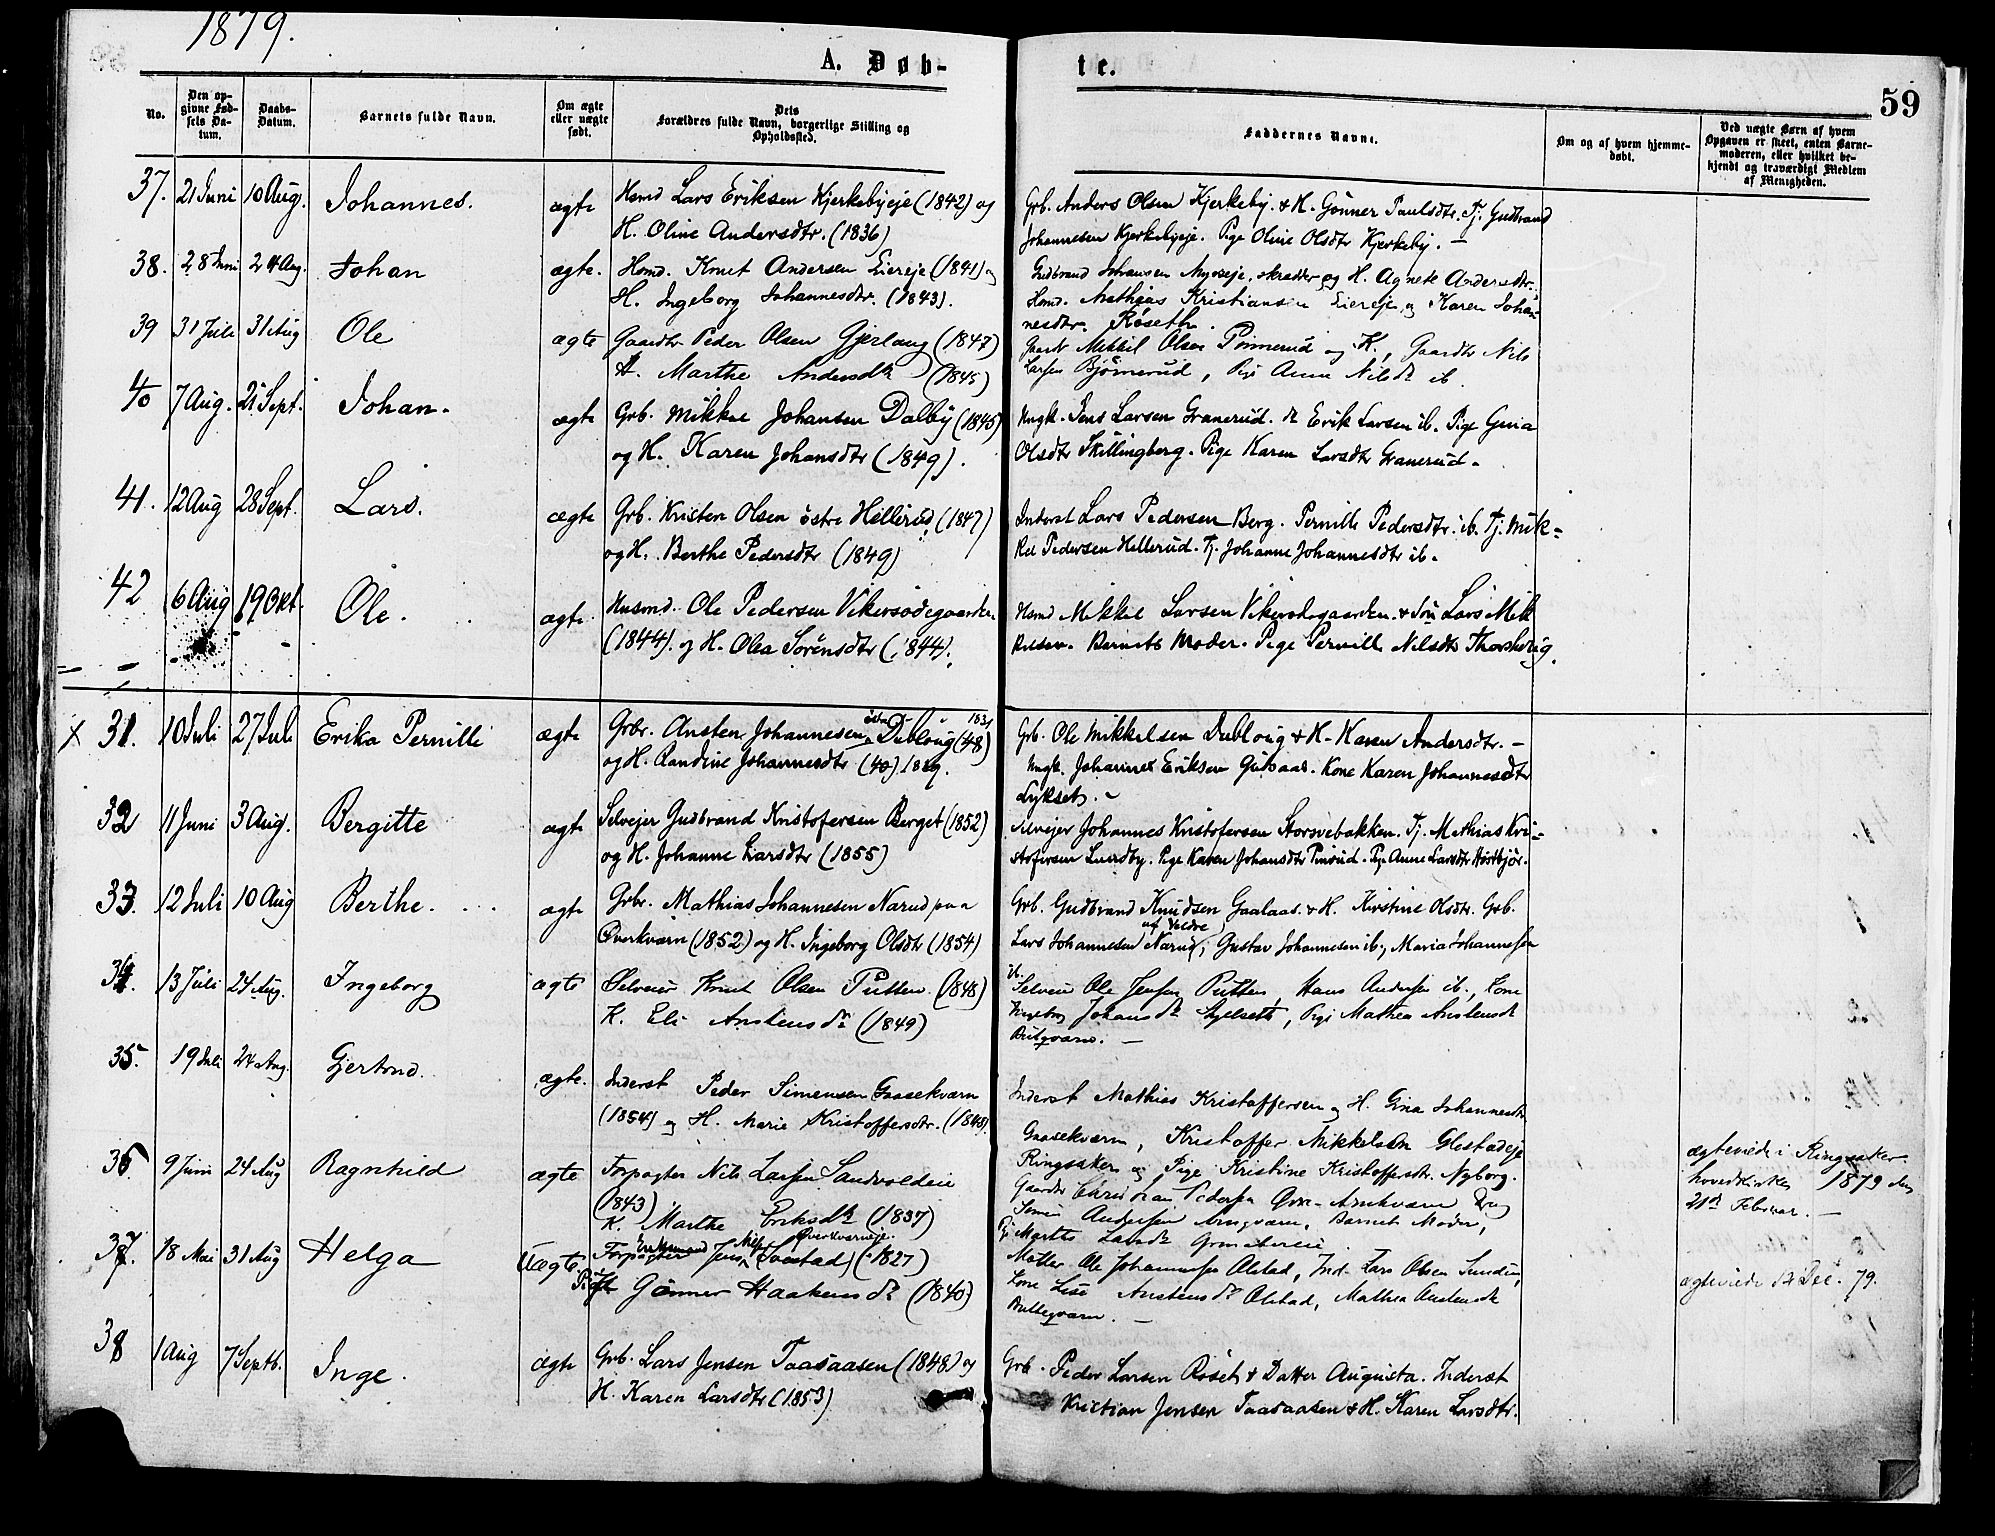 1879.
A. Døb-
te.
59
No.
Den op-
givne Fød-
sels Da-
tum.
Daabs-
Datum.
Barnets fulde Navn.
Om ægte
eller uægte
født.
Dets
Forældres fulde Navn, borgerlige Stilling og
Opholdssted.
Faddernes Navne.
Om og af hvem hjemme-
døbt.
Ved uægte Børn af hvem
Opgaven er skeet, enten Barne-
moderen, eller hvilket be-
kjendt og troværdigt Medlem
af Menigheden.
37. 21 Juni 10 Aug. Johannes. ægte Hsmd Lars Eriksen Kjerkebyeje (1842) og
H. Oline Andersdtr. (1836)
Grb. Anders Olsen Kjerkeby. & H. Gønner Paulsdtr. Tj. Gudbrand
Johannesen Kjerkebyeje. Pige Oline Olsdtr Kjerkeby. —
38. 28 Juni 24 Aug. Johan ægte. Hsmd. Knut Andersen Eiereje (1841) og
H. Ingeborg Johannesdtr. (1843).
Gudbrand Johansen Myrseje, skrædder og H. Agnete Andersdtr.
Hsmd. Mathias Kristiansen Eiereje og Karen Johan-
nesdtr. Røseth.
39 31 Juli 31 Aug Ole ægte Gaardbr Peder Olsen Gjerlaug (1847)
H. Marthe Andersdtr (1845)
Gaardb Mikkil Olsen Pinnerud og H., Gaardbr Nils
Larsen Bjørnerud, Pige Anne Nilsdtr ib.
40 7 Aug. 21 Sept. Johan. ægte Grb. Mikkel Johansen Dalby (1845)
og H. Karen Johansdtr (1849).
Ungk. Jens Larsen Granerud. do Erik Larsen ib. Pige Gina
Olsdtr Skillingberg. Pige Karen Larsdtr Granerud.
41. 12 Aug 28 Sept. Lars. ægte Grb. Kristen Olsen østre Hellerud. (1847)
og H. Berthe Pedersdtr (1849)
Inderst Lars Pedersen Berg. Pernille Pedersdtr. ib. Tj. Mik-
kel Pedersen Hellerud. Tj. Johanne Johannesdtr ib.
42 6 Aug 19 Okt. Ole. ægte. Husmd. Ole Pedersen Vikersødegaarden
(1844). og H. Olea Sørensdtr (1844).
Hsmd Mikkel Larsen Vikersødegaarden. & Søn Lars Mik
kelsen. Barnets Moder. Pige Pernille Nilsdtr
X 31. 10 Juli 27 Juli Erika Pernille ægte Grbr. Austen Johannesen østre Dubloug (48) 1831
og H. Randine Johannesdtr (40) 1839.
Grb. Ole Mikkelsen Dubloug & H. Karen Andersdtr. —
Ungk. Johannes Eriksen Gudsaas. Kone Karen Johannesdtr
Lykset. —
32 11 Juni 3 Aug. Bergitte ægte Selvejer Gudbrand Kristofersen Berget (1852)
og H. Johanne Larsdtr (1855)
Selvejer Johannes Kristofersen Storsvebakken. Tj. Mathias Kri-
stofersen Lundby. Pige Karen Johansdtr Pinrud. Pige Anne Larsdtr
33. 12 Juli 10 Aug Berthe. ægte Grbr. Mathias Johannesen Narud paa
Overkværn (1852) og H. Ingeborg Olsdtr (1854)
Grb. Gudbrand Knudsen Gaalaas. & H. Kirstine Olsdtr. Grb.
Lars Johannesen Narud af Veldre, Gustav Johannesen ib., Maria Johannesen
ib.
34. 13 Juli 24 Aug. Ingeborg ægte Selveier Knut Olsen Putten (1848)
K. Eli Austensdtr (1849)
Selveier Ole Jensen Putten, Hans Andersen ib., Kone
Ingeborg Johansdtr Skjelset, Pige Mathea Austensdtr
35. 19 Juli 24 Aug. Gjertrud. ægte. Inderst Peder Simensen Gaasekværn
(1854) og H. Marie Kristoffersdtr. (1848).
Inderst Mathias Kristoffersen og H. Gina Johannesdtr
Gaasekværn, Kristoffer Mikkelsen Glestadeje
Ringsaker og Pige Kristine Kristoffersdtr. Nyborg.
36 9 Juni 24 Aug Ragnhild ægte Forpagter Nils Larsen Sandvoldeie
(1843)
K. Marthe Eriksdtr (1837)
Gaardbr Christian Pedersen
Andersen Barnets Moder,
Pige Marthe Larsdtr
ægteviede i Ringsaker
hovedkirke 1879 den
21de Februar. —
37. 18 Mai 31 Aug Helga Uægte. Forpagter Jens Nilsen (Svestad) (1827)
Enkemand Overkværneje.
Pige Gønner Haakensdtr (1840)
Møller Ole Johannesen Alstad, Ind. Lars Olsen Sundin,
Kone Lise Austensdtr Alstad, Mathea Austensdtr
ægteviede 12 Dec. 79.
38 1 Aug 7 Septb. Inge. ægte Grb. Lars Jensen Taasaasen (1848) og
H. Karen Larsdtr (1853)
Grb. Peder Larsen Røset & Datter Augusta. Inderst
Kristian Jensen Taasaasen & H. Karen Larsdtr.